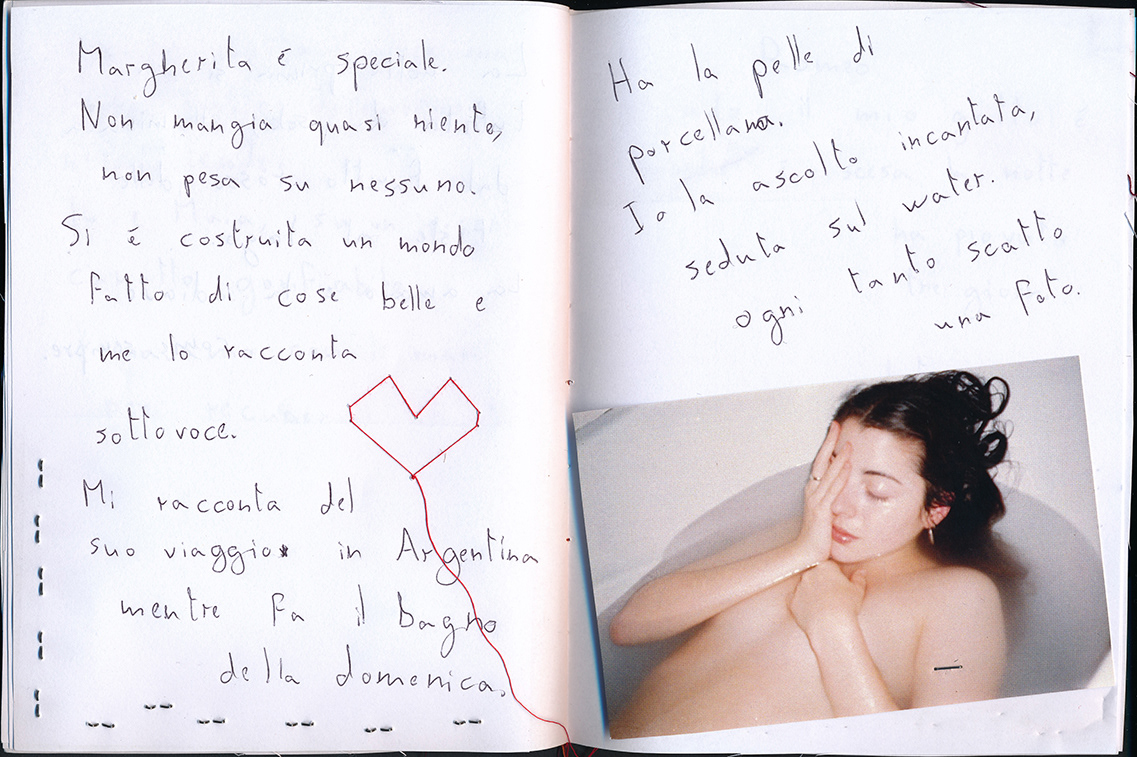 Margherita é speciale.
Non mangia quasi niente,
non pesa su nessuno.
Si é costruita un mondo
fatto di cose belle e
me lo racconta
sottovoce.
Mi racconta del
suo viaggio in Argentina
mentre fa il bagno
della domenica.
Ha la pelle di
porcellana.
Io la ascolto incantata,
seduta sul water.
ogni tanto scatto
una foto.